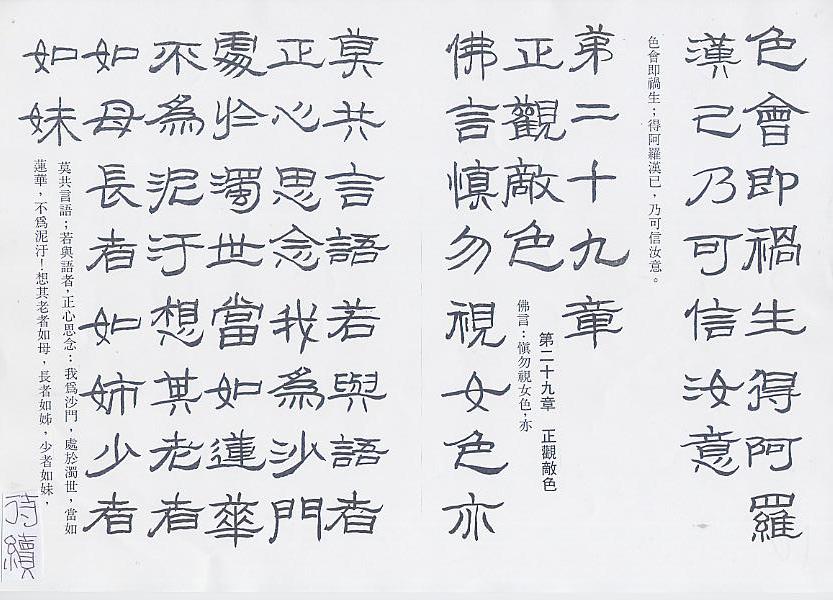 色會即禍生得阿羅
漢已乃可信汝意
色會即禍生；得阿羅漢已，乃可信汝意。
第二十九章
正觀敵色
佛言慎勿視女色亦
第二十九章　正觀敵色
佛言：慎勿視女色，亦
莫共言語若與語者
正心思念我為沙門
處於濁世當如蓮華
不為泥汙想其老者
如母長者如姊少者
如妹
莫共言語；若與語者，正心思念：我為沙門，處於濁世，當如
蓮華，不為泥汙！想其老者如母，長者如姊，少者如妹，
待續